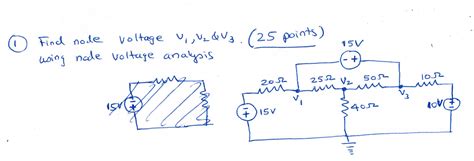 ① Find node voltage V₁, V₂ & V₃. (25 points)
using node voltage analysis
15V
- +
20Ω 25Ω V₂ 50Ω 10Ω
V₁ V₃
15V
15V
40Ω
10V